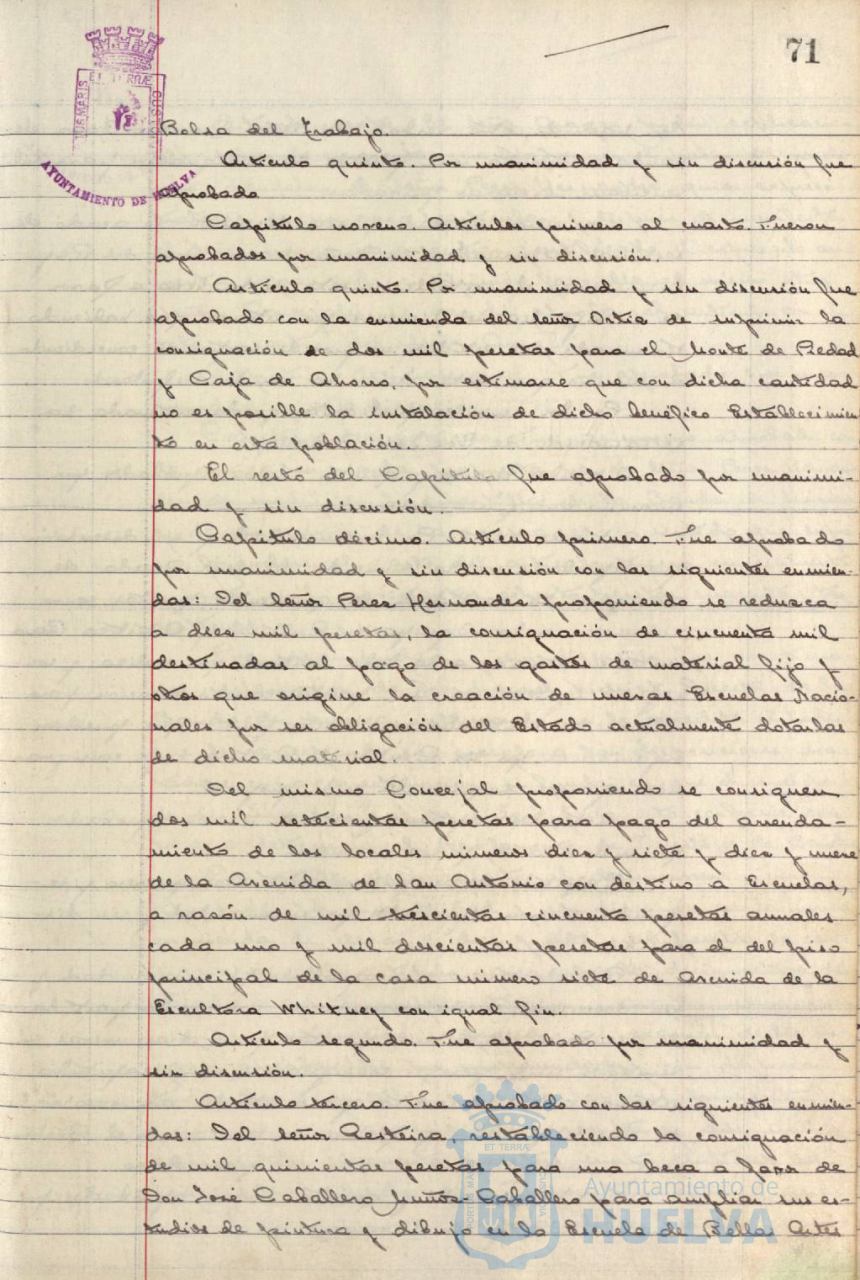 71
ET TERRAE
AYUNTAMIENTO DE HUELVA
Bolsa del Trabajo.
Artículo quinto. Por unanimidad y sin discusión fue
aprobado
Capítulo noveno. Artículos primero al cuarto. Fueron
aprobados por unanimidad y sin discusión.
Artículo quinto. Por unanimidad y sin discusión fue
aprobado con la enmienda del señor Ortiz de suprimir la
consignación de dos mil pesetas para el Monte de Piedad
y Caja de Ahorro, por estimarse que con dicha cantidad
no es posible la instalación de dicho benéfico Establecimien
to en esta población.
El resto del Capítulo fue aprobado por unanimi-
dad y sin discusión.
Capítulo décimo. Artículo primero. Fue aprobado
por unanimidad y sin discusión con las siguientes enmien-
das: Del señor Perez Hernandez proponiendo se reduzca
a diez mil pesetas, la consignación de cincuenta mil
destinadas al pago de los gastos de material fijo y
otros que origine la creación de nuevas Escuelas Nacio-
nales por ser obligación del Estado actualmente dotarlas
de dicho material.
Del mismo Concejal proponiendo se consignen
dos mil setecientas pesetas para pago del arrenda-
miento de los locales números diez y siete y diez y nueve
de la Avenida de San Antonio con destino a Escuelas,
a razón de mil trescientas cincuenta pesetas anuales
cada uno y mil doscientas pesetas para el del piso
principal de la casa número siete de Avenida de la
Escultora Whitney con igual fin.
Artículo segundo. Fue aprobado por unanimidad y
sin discusión.
Artículo tercero. Fue aprobado con las siguientes enmien-
das: Del señor Resteira, restableciendo la consignación
de mil quinientas pesetas para una beca a favor de
Don José Caballero Muñoz-Caballero para ampliar sus es-
tudios de pintura y dibujo en la Escuela de Bellas Artes
Ayuntamiento de
HUELVA